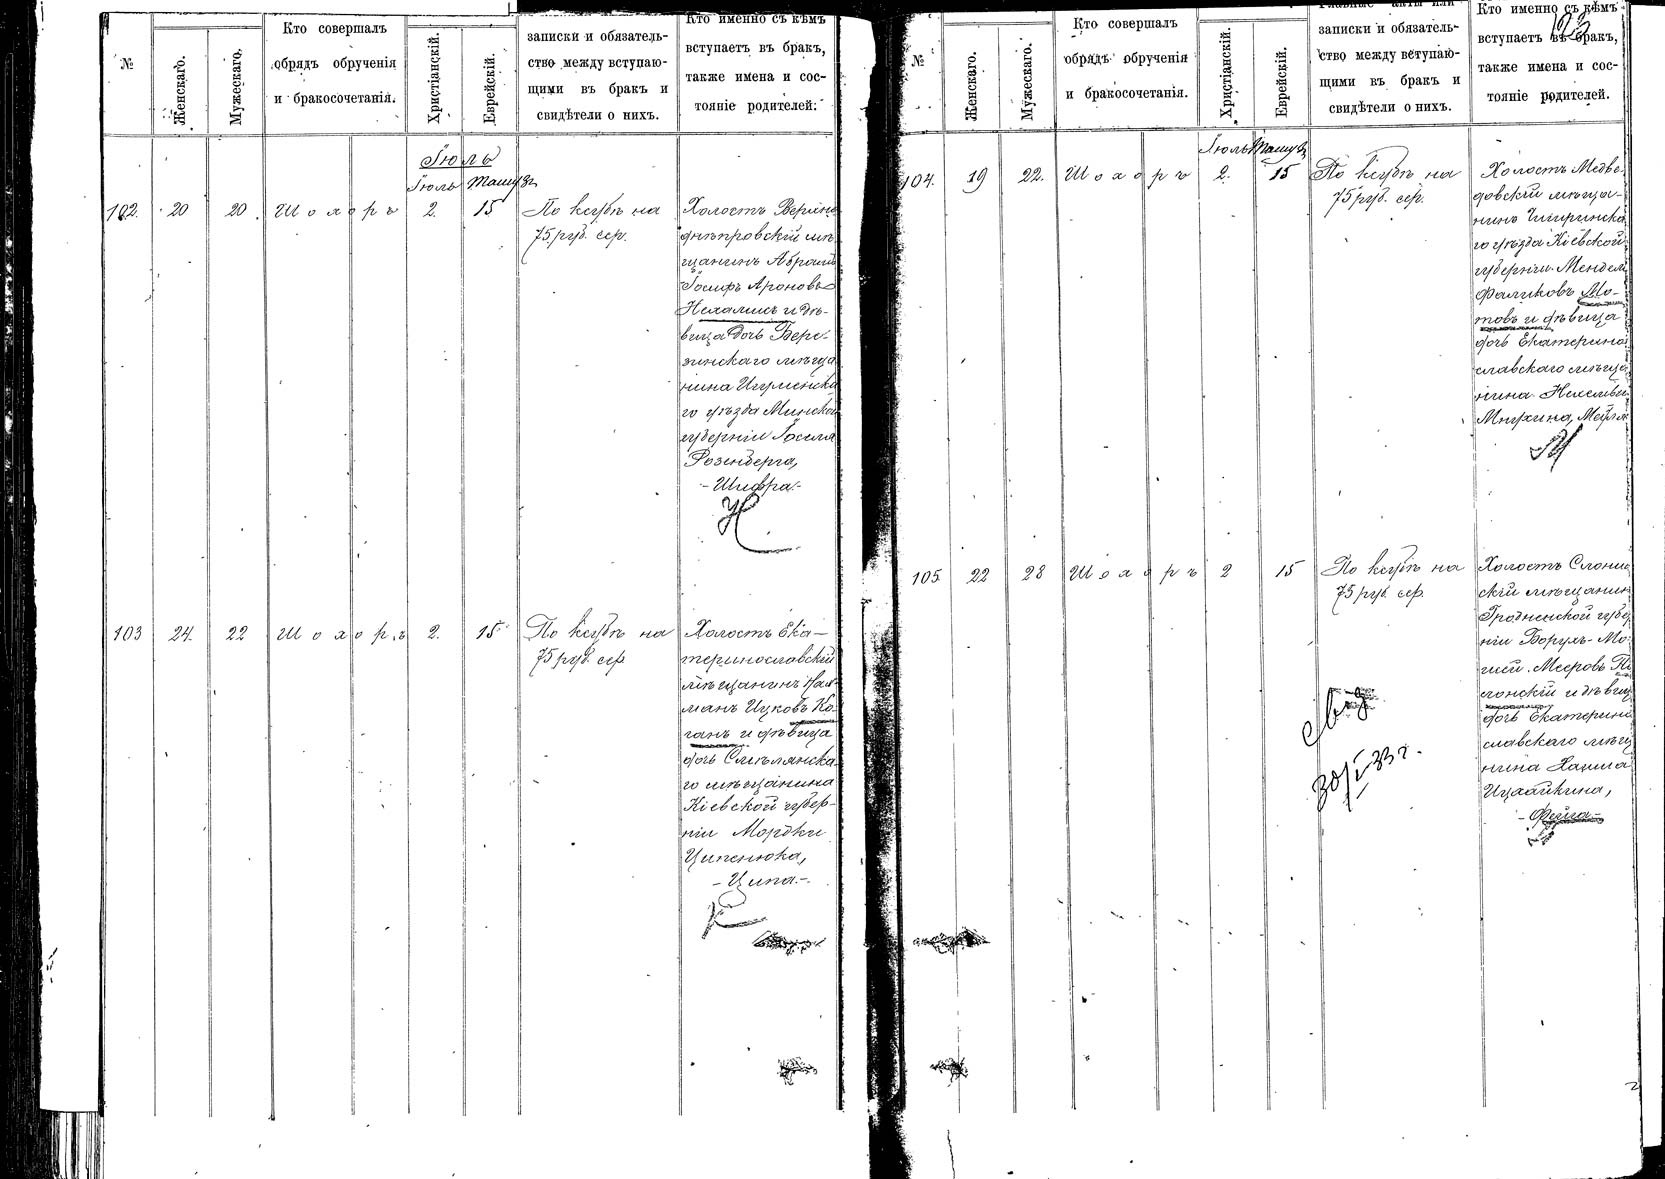 №
Женскаго.
Мужескаго.
Кто совершалъ
обрядъ обрученія
и бракосочетанія.
Христіанскій.
Еврейскій.
записки и обязатель-
ство между вступаю-
щими въ бракъ и
свидѣтели о нихъ.
Кто именно съ кѣмъ
вступаетъ въ бракъ,
также имена и сос-
тояніе родителей.
Іюль
Іюль Тамузъ
102. 20 20 Шохоръ 2. 15
По ксубѣ на
75 руб. сер.
Холостъ Верхне
днѣпровскій мѣ
щанинъ Абрамъ
Іосифъ Ароновъ
и дѣ-
вица дочь Бере-
зинскаго мѣща
нина Игуменска
го уѣзда Минской
губерніи
Розенберга,
- Шифра. -
Н
103 24. 22 Шохоръ 2. 15
По ксубѣ на
75 руб. сер.
Холостъ Ека-
теринославскій
мѣщанинъ Нах-
манъ Ицковъ Ко
ганъ и дѣвица
дочь Смѣлянска
го мѣщанина
Кіевской губер-
ніи Мордки
Ципенюка,
- Ципа. -
К
№
Женскаго.
Мужескаго.
Кто совершалъ
обрядъ обрученія
и бракосочетанія.
Христіанскій.
Еврейскій.
Главные акты или
записки и обязатель-
ство между вступаю-
щими въ бракъ и
свидѣтели о нихъ.
Кто именно съ кѣмъ
вступаетъ въ бракъ,
также имена и сос-
тояніе родителей.
123
Іюль Тамузъ
104. 19 22. Шохоръ 2. 15
По ксубѣ на
75 руб. сер.
Холостъ Медве-
довскій мѣща-
нинъ Чигиринска
го уѣзда Кіевской
губерніи Мендель
Фаликовъ Мо-
товъ и дѣвица
дочь Екатерино
славскаго мѣща
нина
Мнухина,
М
105 22 28 Шохоръ 2 15
По ксубѣ на
75 руб. сер.
Холостъ Слоним
скій мѣщанинъ
Гродненской губер
ніи Борухъ-Мо-
исей Мееровъ По
лонскій и дѣвица
дочь Екатерино
славскаго мѣщ
нина Хаима
Ицхайкина,
- Фейга -
30/I-33 г.